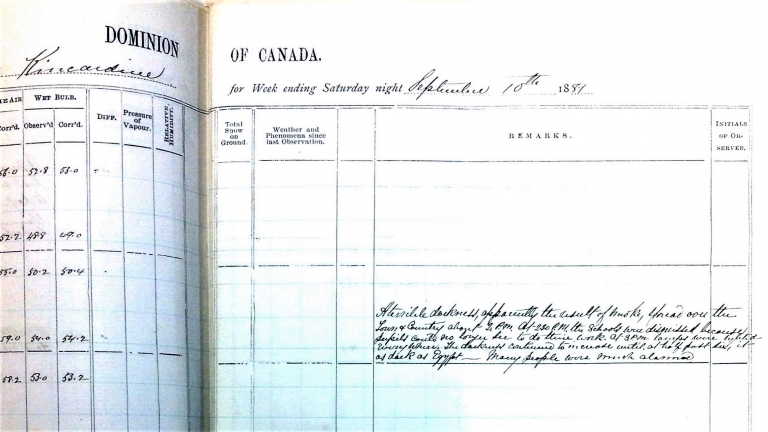 DOMINION OF CANADA.
Kincardine
for Week ending Saturday night September 10th 1881
HE AIR WET BULB.
Corr'd. Observ'd Corr'd. DIFF. Pressure of Vapour. RELATIVE HUMIDITY.
Total Snow on Ground.
Weather and Phenomena since last Observation.
REMARKS.
INITIALS OF OB-SERVER.
52.8 53.0
52.2 48.9 49.0
55.0 50.2 50.4
59.0 54.0 54.2
58.2 53.0 53.2
A terrible darkness, apparently the result of smoke, spread over the
Town & Country about 2 P.M. At 2:30 P.M. the Schools were dismissed because
pupils could no longer see to do their work. At 3 P.M. lamps were lighted
everywhere. The darkness continued to increase until at half past six, it
as dark as Egypt — Many people were much alarmed